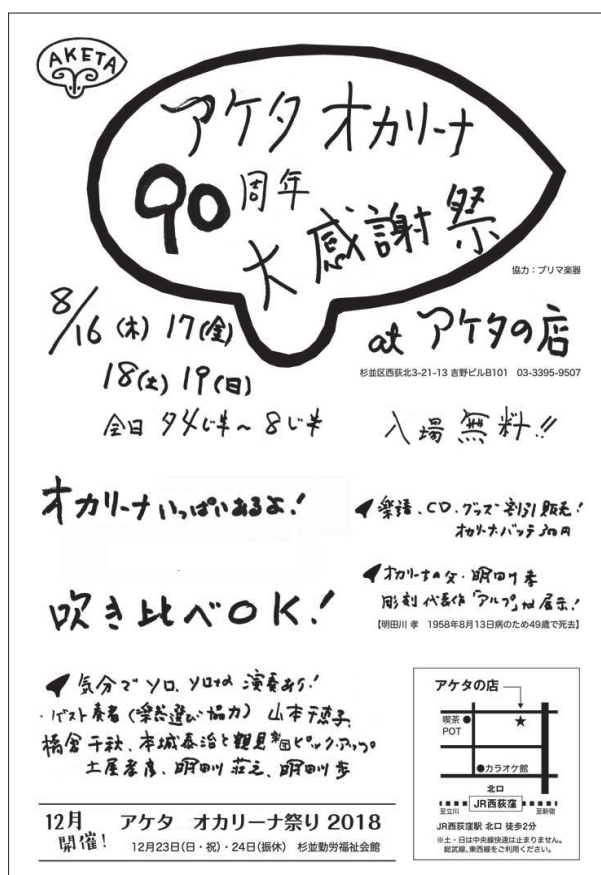 AKETA
アケタ オカリーナ
90周年
大感謝祭
協力：プリマ楽器
8/16(木) 17(金)
18(土) 19(日)
全日 夕4じ半〜8じ半
at アケタの店
杉並区西荻北3-21-13 吉野ビルB101 03-3395-9507
入場無料!!
オカリーナいっぱいあるよ!
吹き比べOK!
楽譜、CD・グッズ割引販売!
オカリーナバッチ300円
オカリーナの父・明田川孝
彫刻代表作「アルプ」が展示!
【明田川 孝 1958年8月13日病のため49歳で死去】
気分でソロ、ソロは演奏あり!
・ゲスト奏者(楽器選び協力) 山本千恵子
橋倉千秋、本城泰治と観見楽団ピックアップ
土屋孝彦、明田川荘之、明田川歩
アケタの店
喫茶
POT
カラオケ館
北口
JR西荻窪
至立川
至新宿
JR西荻窪駅 北口 徒歩2分
※土・日は中央線快速は止まりません。
総武線、東西線をご利用ください。
12月
開催!
アケタ オカリーナ祭り 2018
12月23日(日・祝)・24日(振休) 杉並勤労福祉会館